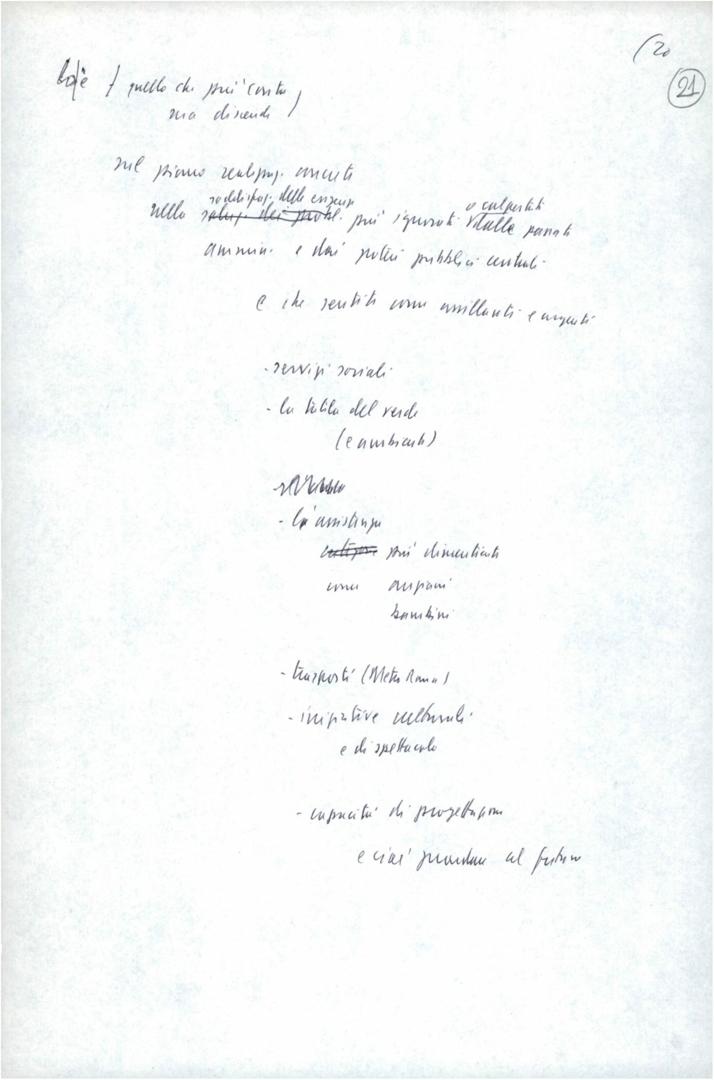 (20
21
quello che più conta
ma discende )
sul piano realizzaz. concrete
soddisfaz. delle esigenze
o calpestati
nella soluz. dei probl. più ignorati dalle passate
ammin. e dai poteri pubblici centrali
e che sentiti come assillanti e urgenti
- servizi sociali
- la tutela del verde
(e ambiente)
- l'assistenza
categorie più dimenticate
come anziani
bambini
- trasporti (Metro Roma)
- iniziative culturali
e di spettacolo
- capacità di progettazione
e cioè guardare al futuro